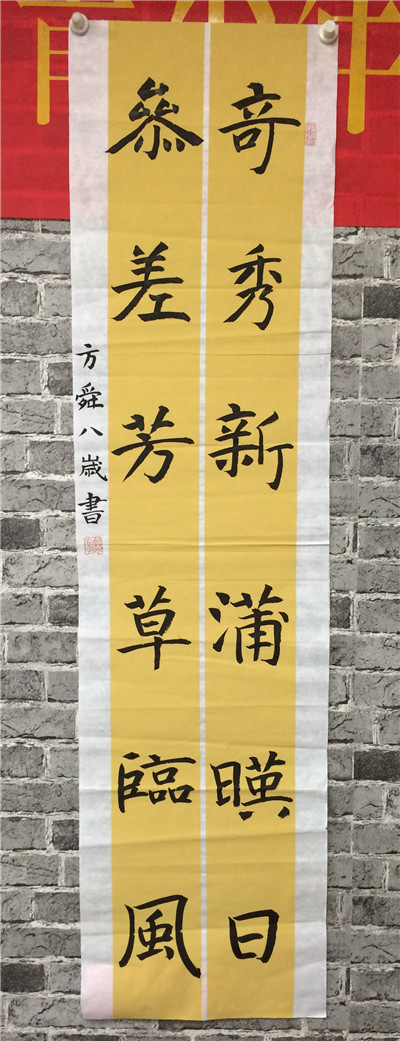 奇秀新蒲暎日
叅差芳草臨風
方舜八歲書